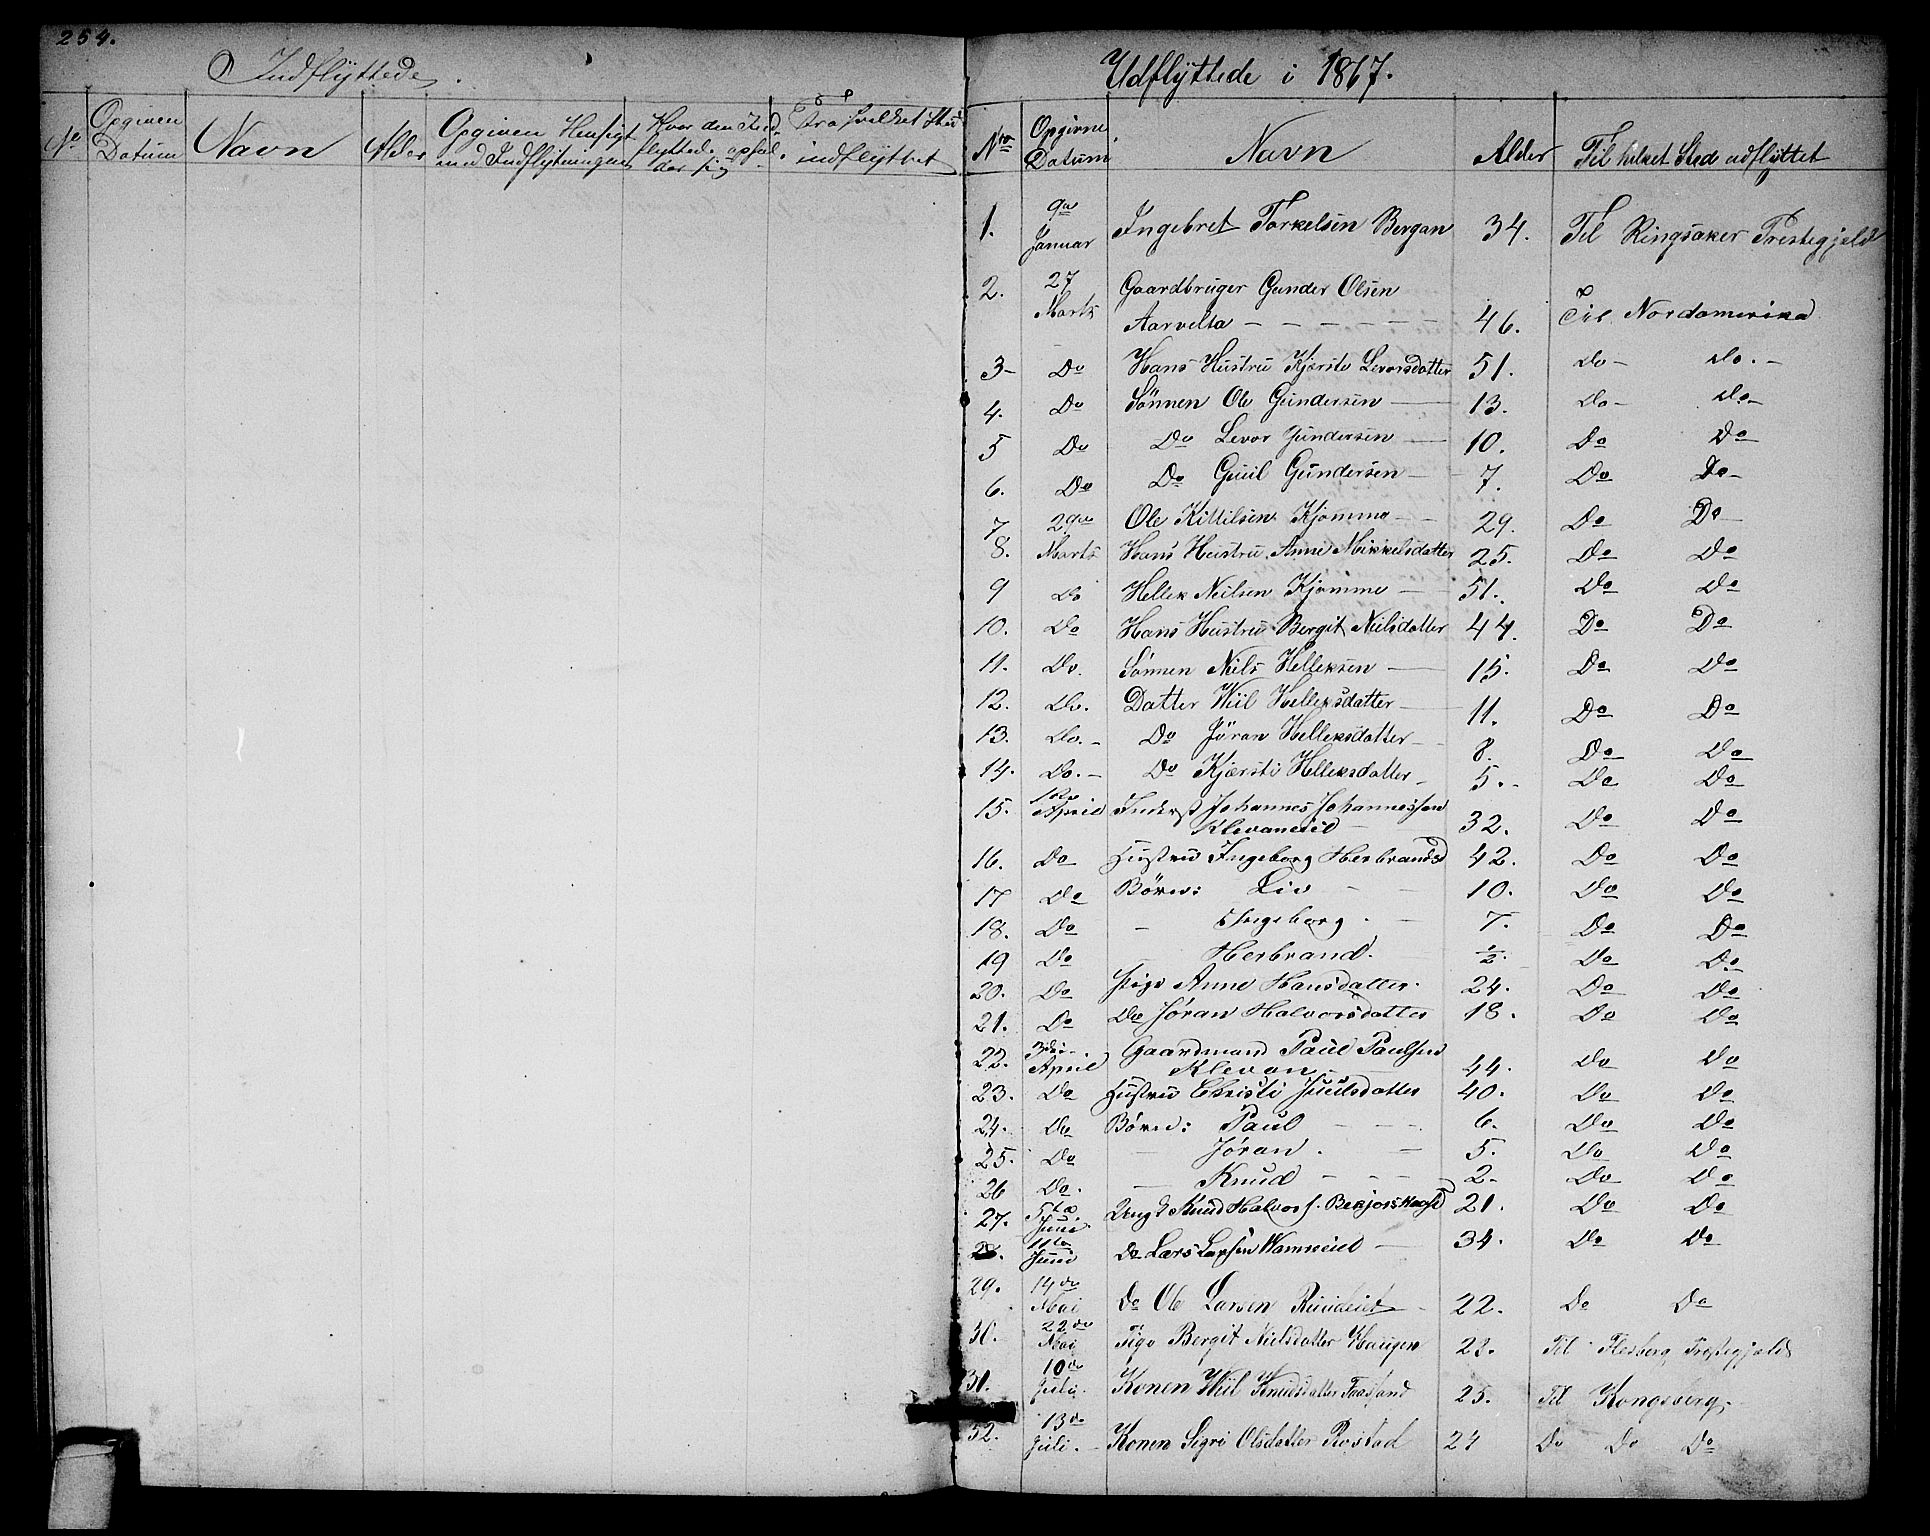 254.
Indflyttede.
No Opgiven Datum Navn Alder Opgiven Hensigt med Indflytningen Hvor den Ind- flyttede ophol- der sig Fra hvilket Sted indflyttet
Udflyttede i 1867.
Nro Opgivne Datum Navn Alder Til hvilket Sted udflyttet
1. 9de Januar Ingebret Torkelsen Bergan 34. Til Ringsaker Prestegjeld
2. 27 Marts Gaardbruger Gunder Olsen
Aarvelta — — — — — — 46. Til Nordamerika
3 – Do Hans Hustru Kjersti Levorsdatter 51. do – do. –
4. Do Sønnen Ole Gundersen — 13. do – do –
5 Do Do Levor Gundersen — 10. Do Do
6. Do Do Guul Gundersen — 7. Do Do –
7. 29de Ole Kittilsen Kjomme — 29. Do Do –
8. Marts Hans Hustru Anne Mikkelsdatter 25. Do Do
9 Do Hellek Neilsen Kjomme — 51. Do Do
10. Do Hans Hustru Bergit Nielsdatter 44. Do Do
11. Do. Sønnen Niels Helleksen — 15. Do Do
12. Do. Datter Wiil Helleksdatter — 11. Do Do
13. Do. – Do Jøran Helleksdatter — 8. Do Do
14. Do. – Do Kjærsti Helleksdatter – 5. – Do Do
15. April Inderst Johannes Johannessen
Klevaneiel — 32. Do Do
16. Do Hustru Ingeborg Herbrandsd 42. Do Do
17 Do Børn: Liv — — 10. Do Do
18. Do — Ingeborg. — 7. Do Do
19 Do Herbrand. ½. Do Do
20. Do Pige Anne Hansdatter. 24. Do Do
21. Do Do Jøran Halvorsdatter 18. Do Do
22. 3die April Gaardmand Paul Paulsen
Klevan — 44. Do Do
23. Do Hustru Christi Juulsdatter 40. Do Do
24. Do Børn: Paul — — — 6. Do Do
25. Do — Jøran. — 5. Do Do
26 Do. — Knud — — — 2. Do Do
27. 5te Juni Ungk Knud Halvors. 21. Do Do
28. 11te Juni Do Lars Larsen — 34. Do Do
29. 14de Mai Do Ole Larsen Rundeiet — 22. Do Do
30. 22de Mai Pige Bergit Nielsdatter Haugen 23. Til Flesberg Prestegjeld
31. 10de Juli. Konen Wiil Knudsdatter 25. Til Kongsberg.
32. 13de Juli. – Konen Sigri Olsdatter Rostad 24 Do Do Do